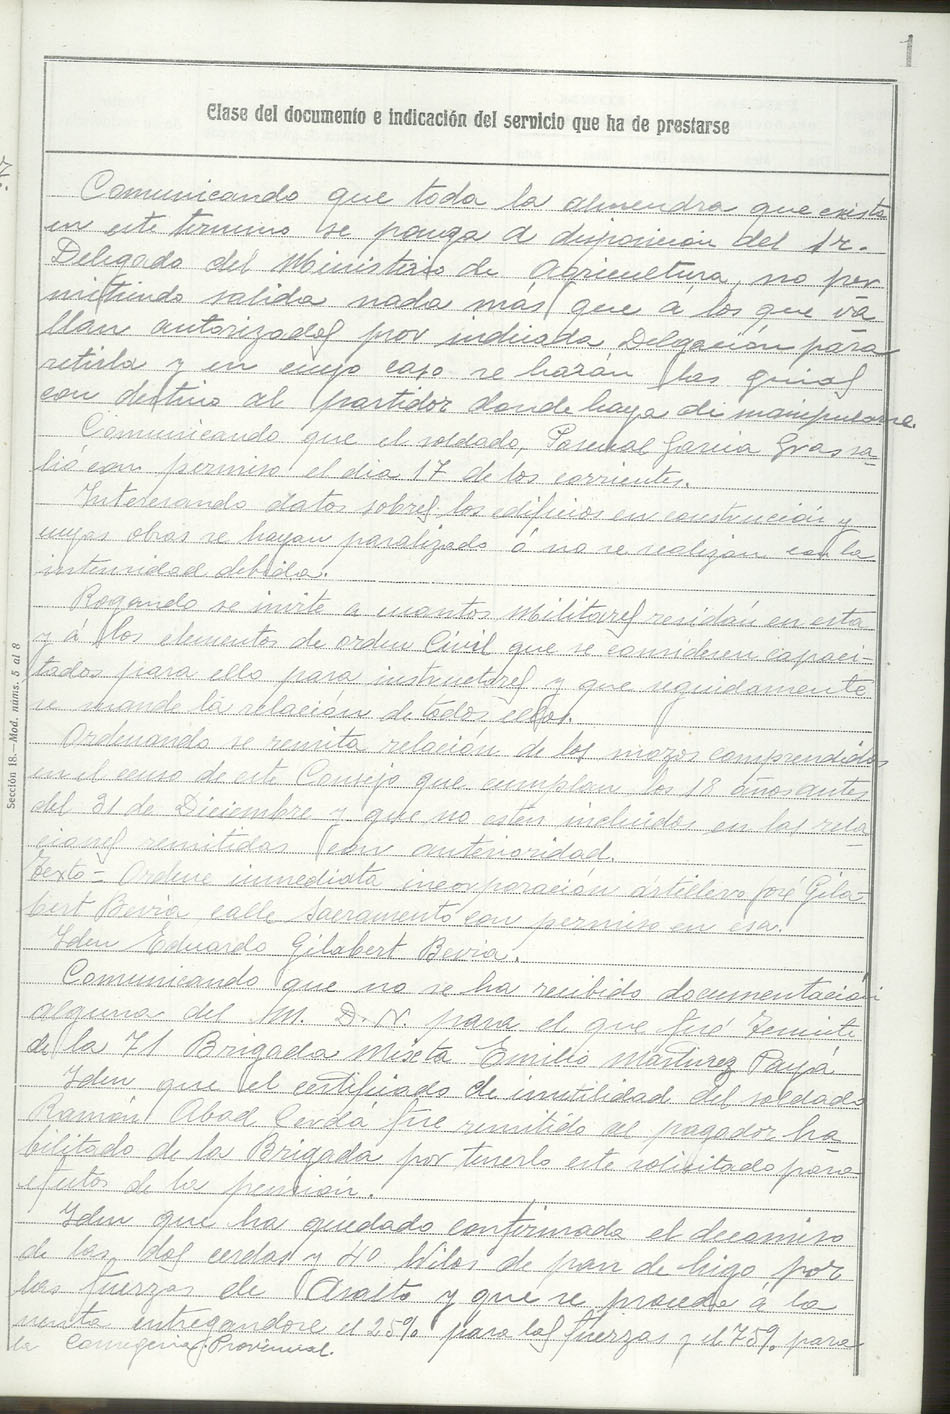 1
Clase del documento e indicación del servicio que ha de prestarse
Comunicando que toda la almendra que exista
en este termino se ponga a disposición del Sr.
Delegado del Ministerio de Agricultura, no per
mitiendo salida nada más que á los que va
llan autorizados por indicada Delgación para
retirla y en cuyo caso se harán las guias
con destino al partidor donde haya de manipularse.
Comunicando que el soldado, Pascual Garcia Gras sa-
lió con permiso el dia 17 de los corrientes.
Interesando datos sobre los edificios en construcción y
cuyas obras se hayan paralizado ó no se realizan con la
intensidad debida.
Rogando se invite a cuantos Militares residan en esta
y á los elementos de orden Civil que se consideren capaci-
tados para ello para instructores y que seguidamente
se mande la relación de todos ellos.
Ordenando se remita relación de los mozos comprendidos
en el censo de este Consejo que cumplan los 18 años antes
del 31 de Diciembre y que no esten incluidos en las rela-
ciones remitidas con anterioridad.
Texto = Ordene inmediata incorporación artillero José Gila-
bert Bevia calle Sacramento con permiso en esa.
Iden Eduardo Gilabert Bevia.
Comunicando que no se ha recibido documentación
alguna del M. D. N. para el que fué Teniente
de la 71 Brigada Mixta Emilio Martinez Payá
Iden que el certificado de inutilidad del soldado
Ramón Abad Cerdá fue remitido al pagador ha
bilitado de la Brigada por tenerlo este solicitado para
efectos de la pensión.
Iden que ha quedado confirmado el decomiso
de las dos cerdas y 40 kilos de pan de higo por
las fuerzas de Asalto y que se proceda á la
venta entregandose el 25% para las fuerzas y el 75% para
la Consegeria Provincial.
Sección 18.—Mod. núms. 5 al 8